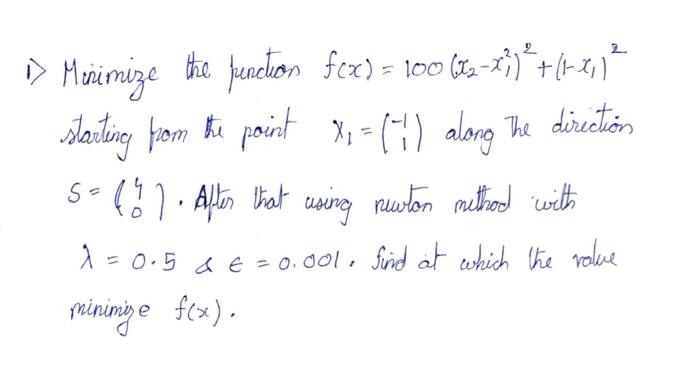 1) Minimize the function f(x) = 100 (x₂-x₁²)² + (1-x₁)²
starting from the point X₁ = (-1 1) along the direction
S = (4 0). After that using newton method with
λ = 0.5 & ϵ = 0.001. find at which the value
minimize f(x).